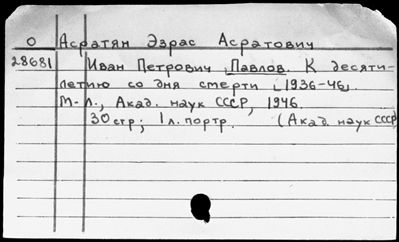 О Асратян Эзрас Асратович
28681 Иван Петрович Павлов. К десяти-
летию со дня смерти [1936-46].
М.-Л., Акад. наук СССР, 1946.
30 стр; 1 л. портр. (Акад. наук СССР)